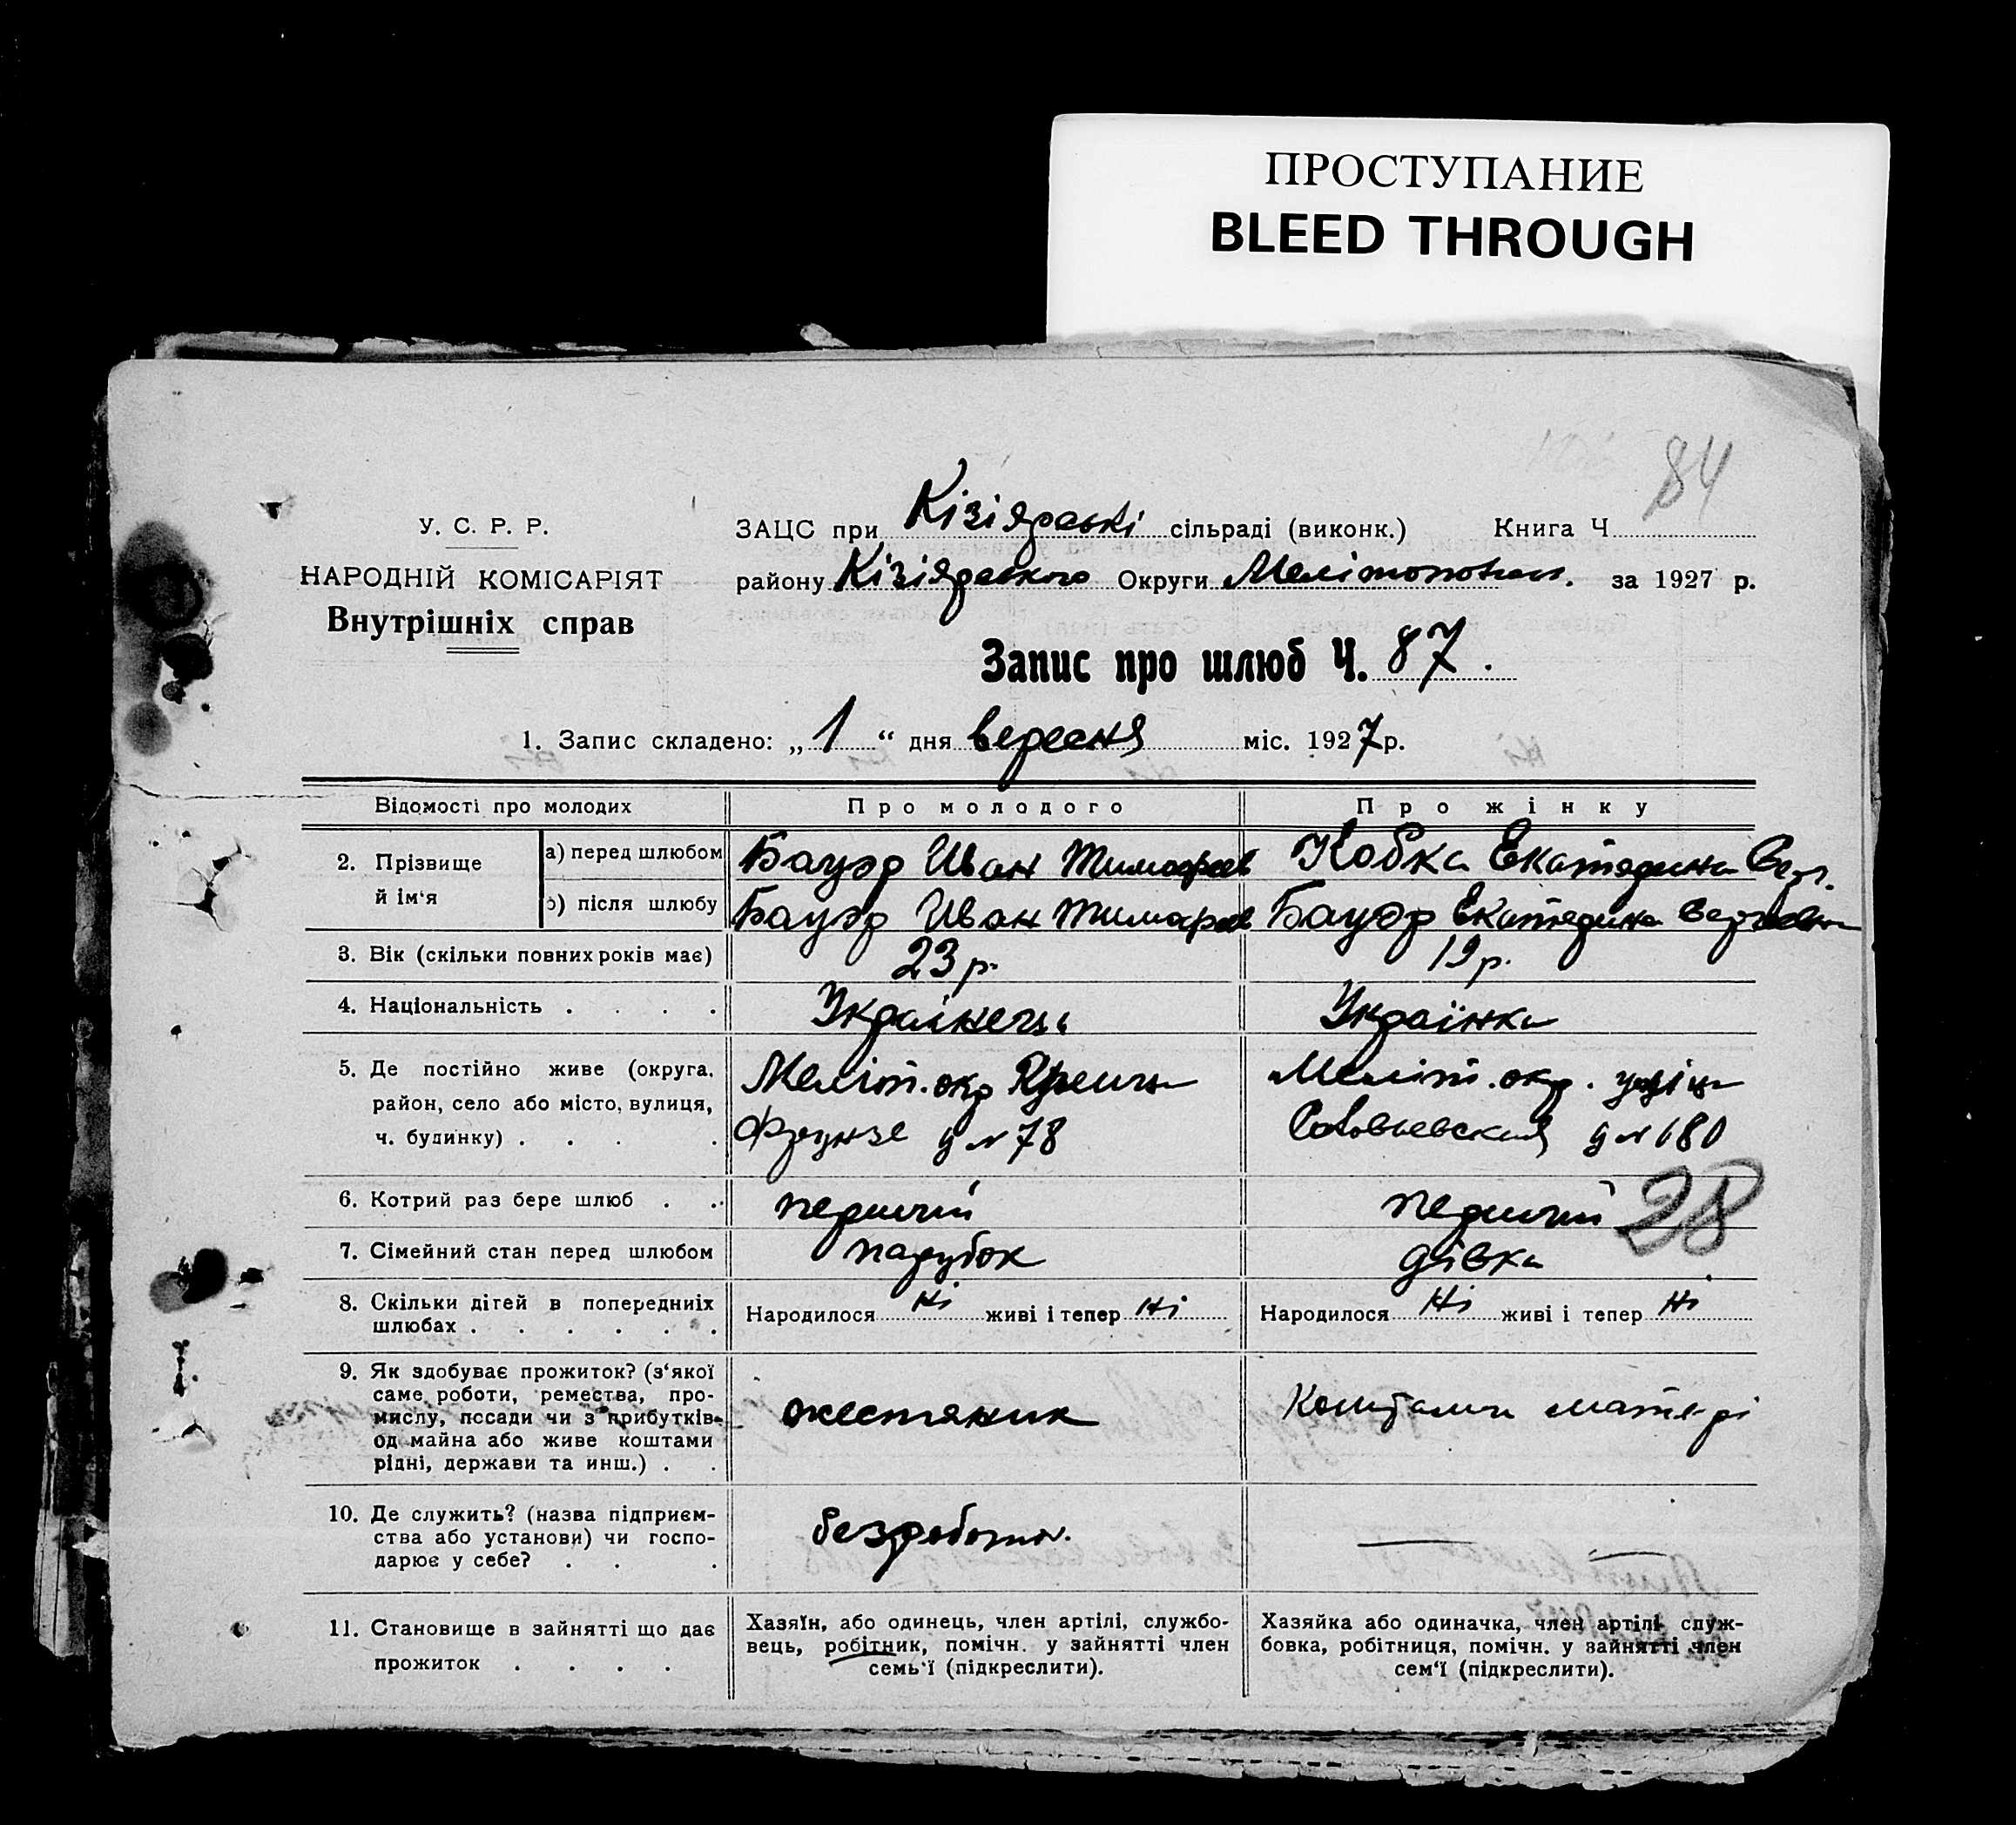 ПРОСТУПАНИЕ
BLEED THROUGH
84
У. С. Р. Р.
НАРОДНІЙ КОМІСАРІЯТ
Внутрішніх справ
ЗАЦС при Кізіярські сільраді (виконк.) Книга Ч
району Кізіярського Округи за 1927 р.
Запис про шлюб Ч. 87.
1. Запис складено: „1“ дня вересня міс. 1927 р.
Відомості про молодих Про молодого Про жінку
2. Прізвище й ім‘я
а) перед шлюбом Бауэр Иван Тимофеев Кобка Екатерина
б) після шлюбу Бауэр Иван Тимофеев Бауэр Екатерина
3. Вік (скільки повних років має) 23 р. 19 р.
4. Національність . . . . Українець Українка
5. Де постійно живе (округа, Меліт. окр Меліт. окр.
район, село або місто, вулиця, Фрунзе д № 78 Соловьевская д № 180
ч. будинку) . . . .
6. Котрий раз бере шлюб . . перший перший
28
7. Сімейний стан перед шлюбом парубок дівка
8. Скільки дітей в попередніх Народилося Ні живі і тепер Ні Народилося Ні живі і тепер Ні
шлюбах . . . . . .
9. Як здобуває прожиток? (з‘якої
саме роботи, ремества, про-
мислу, посади чи з прибутків жестяник Коштами матері
од майна або живе коштами
рідні, держави та инш.) . .
10. Де служить? (назва підприєм-
ства або установи) чи госпо-
дарює у себе? . . .
11. Становище в зайнятті що дає
прожиток . . . .
Хазяїн, або одинець, член артілі, службо-
вець, робітник, помічн. у зайнятті член
семь‘ї (підкреслити).
Хазяйка або одиначка, член артілі служ-
бовка, робітниця, помічн. у зайнятті член
сем‘ї (підкреслити).